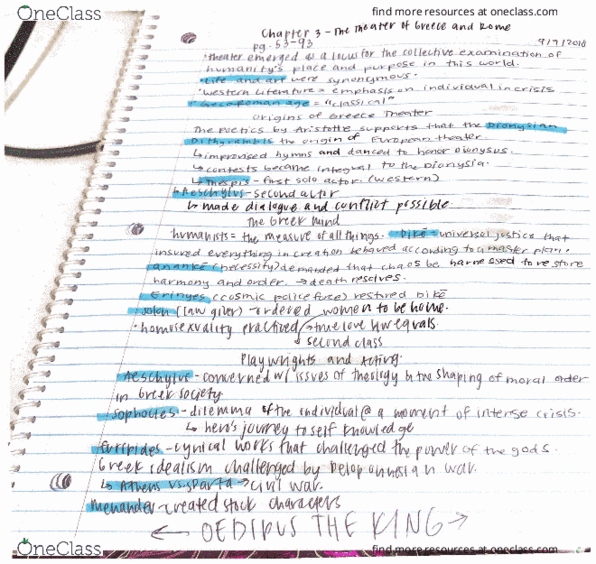 OneClass
find more resources at oneclass.com
Chapter 3 - The Theater of Greece and Rome
pg. 53-93
9/9/2018
·theater emerged @ a locus for the collective examination of
humanity's place and purpose in this world.
·Life and art were synonymous.
·Western Literature = emphasis on individual in crisis
·Greco Roman age = "classical"
Origins of Greece Theater
The Poetics by Aristotle supports that the Dionysian
Dithyramb is the origin of European theater.
↳ improvised hymns and danced to honor Dionysus.
↳ contests became integral to the Dionysia.
↳ Thespis - first solo actor (western)
↳ Aeschylus - second actor
↳ made dialogue and conflict possible.
The Greek Mind
humanists = the measure of all things. dikē - universal justice that
insured everything in creation behaved according to a master plan.
anankē (necessity) demanded that chaos be harnessed to restore
harmony and order. → death resolves.
Erinyes (cosmic police force) restored dikē
Solon (law giver) - ordered women to be home.
·homosexuality practiced true love b/w equals.
second class
Playwrights and Acting
Aeschylus - concerned w/ issues of theology & the shaping of moral order
in Greek society
Sophocles - dilemma of the individual @ a moment of intense crisis.
↳ hero's journey to self knowledge
Euripides - cynical works that challenged the power of the gods.
Greek idealism challenged by Peloponnesian war.
↳ Athens vs. Sparta → civil war.
Menander - created stock characters
← OEDIPUS THE KING →
OneClass
find more resources at oneclass.com